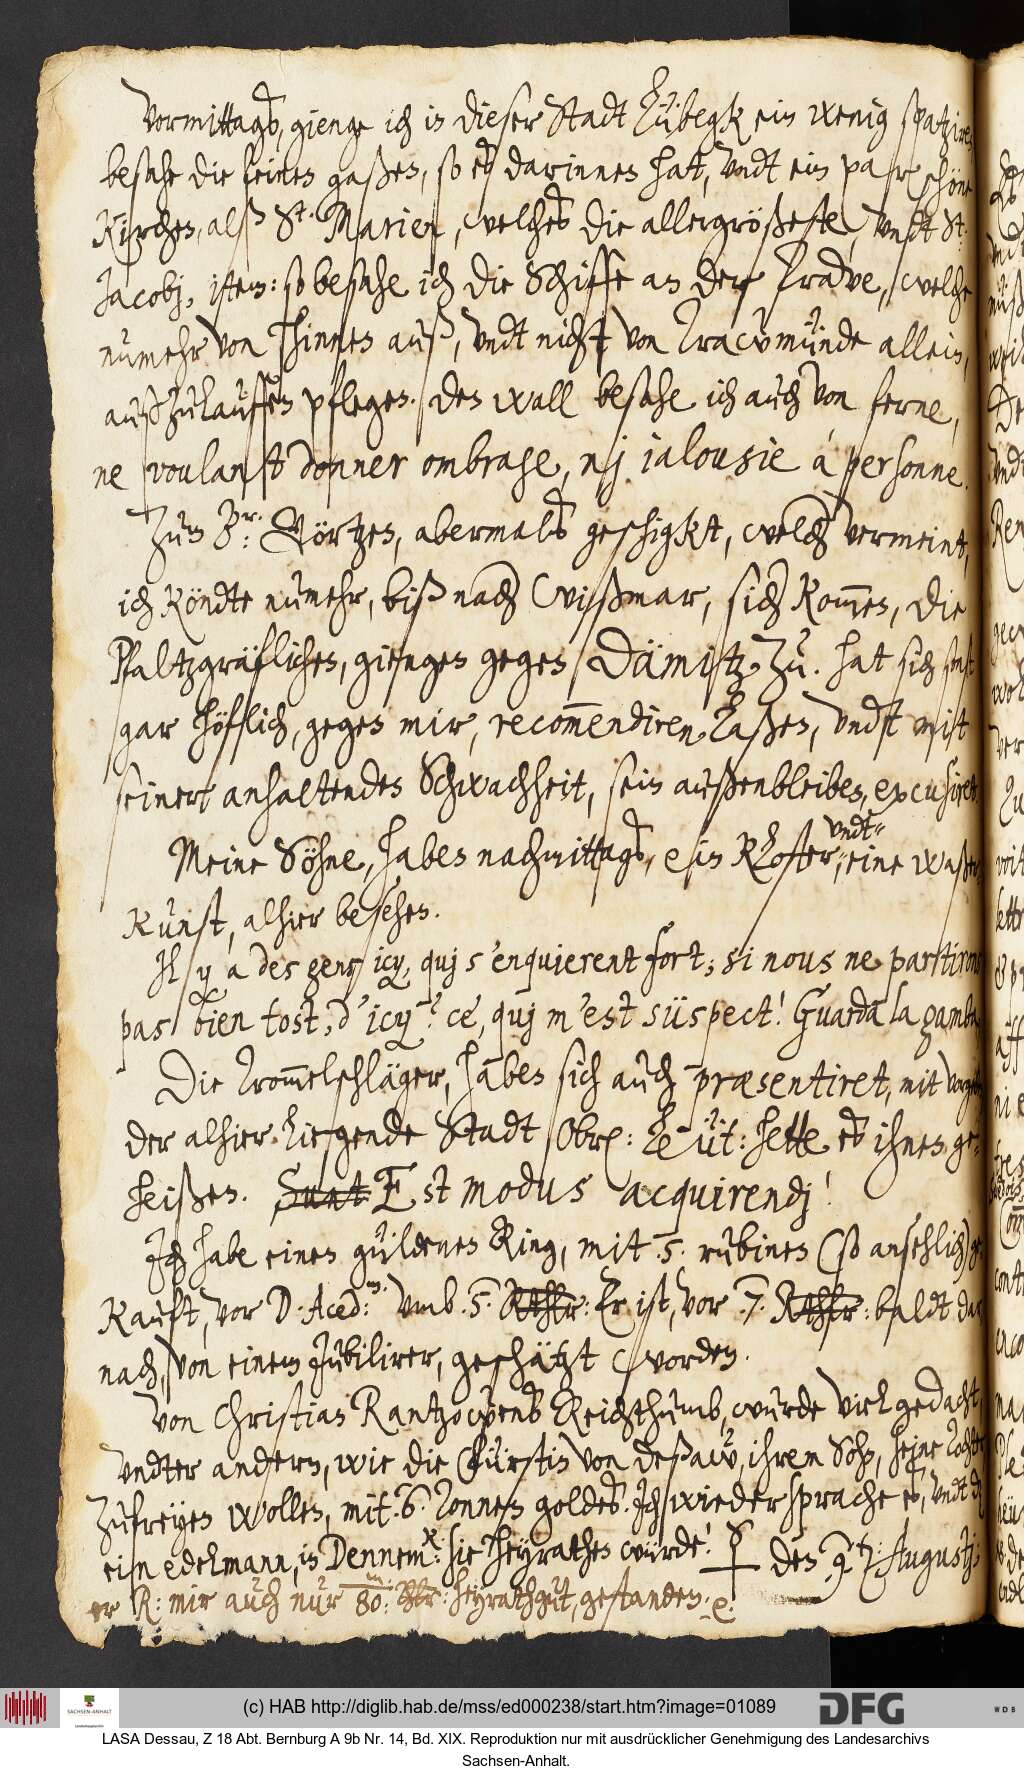 Vormittags, gienge ich in dieser Stadt Lübegk ein wenig spatziren
besahe die feinen gaßen, so es darinnen hat, undt ein par schöne
Kirchen, alß St. Marien, welches die allergrößeste, undt St:
Jacobj, item: so besahe ich die Schiffe an der Trave, welche
numehr von hinnen auß, undt nicht von Travemünde allein,
außzulauffen pflegen. Den wall besahe ich auch von ferne,
ne voulant donner ombrage, nj jalousie à personne.
Zum Gr: Görtzen, abermals geschigkt, welch vermeint,
ich köndte numehr, biß nach Wißmar, sich kommen, die
Pfaltzgräflichen, giengen gegen Dämitz zu. hat sich sonst
gar höfflich, gegen mir, recommendiren laßen, undt mit
seiner anhaltenden Schwachheit, sein außenbleiben, excusiret.
Meine Söhne, haben nachmittags, ein Kloster, undt eine waßer-
kunst, alhier besehen.
Il y a des gens icy, quj s'enquierent fort; si nous ne partirons
pas bien tost, d'icy? ce, quj m'est süspect! Guarda la gamba
Die Trommelschläger, haben sich auch præsentiret, mit vorgeben
der alhier liegende Stadt Obr: Leüt: hette es ihnen ge-
heißen. Sunt Est modus acquirendj!
Ich habe einen güldenen Ring, mit .5. rubinen (so ansehlich) ge-
kauft, vor D. Aced: umb .5. Rthlr: Er ist, vor .7. Rthlr: baldt dar
nach, von einem Jubilirer, geschätzt worden.
Von Christian Rantzowens Reichthumb, wurde viel gedacht,
undter andern, wie die Fürstin von Deßaw, ihrem Sohn, seine Tochter
zufreyen wollen, mit .6. Tonnen goldes. Ich wiedersprache es, undt daß
ein edelmann, in Dennem: sie heyrathen würde! den 9. Augustj:
er R: mir auch nur 80: Rthlr: heyrathgut, gestanden. e.
(c) HAB http://diglib.hab.de/mss/ed000238/start.htm?image=01089
SACHSEN-ANHALT
DFG
WDB
LASA Dessau, Z 18 Abt. Bernburg A 9b Nr. 14, Bd. XIX. Reproduktion nur mit ausdrücklicher Genehmigung des Landesarchivs
Sachsen-Anhalt.